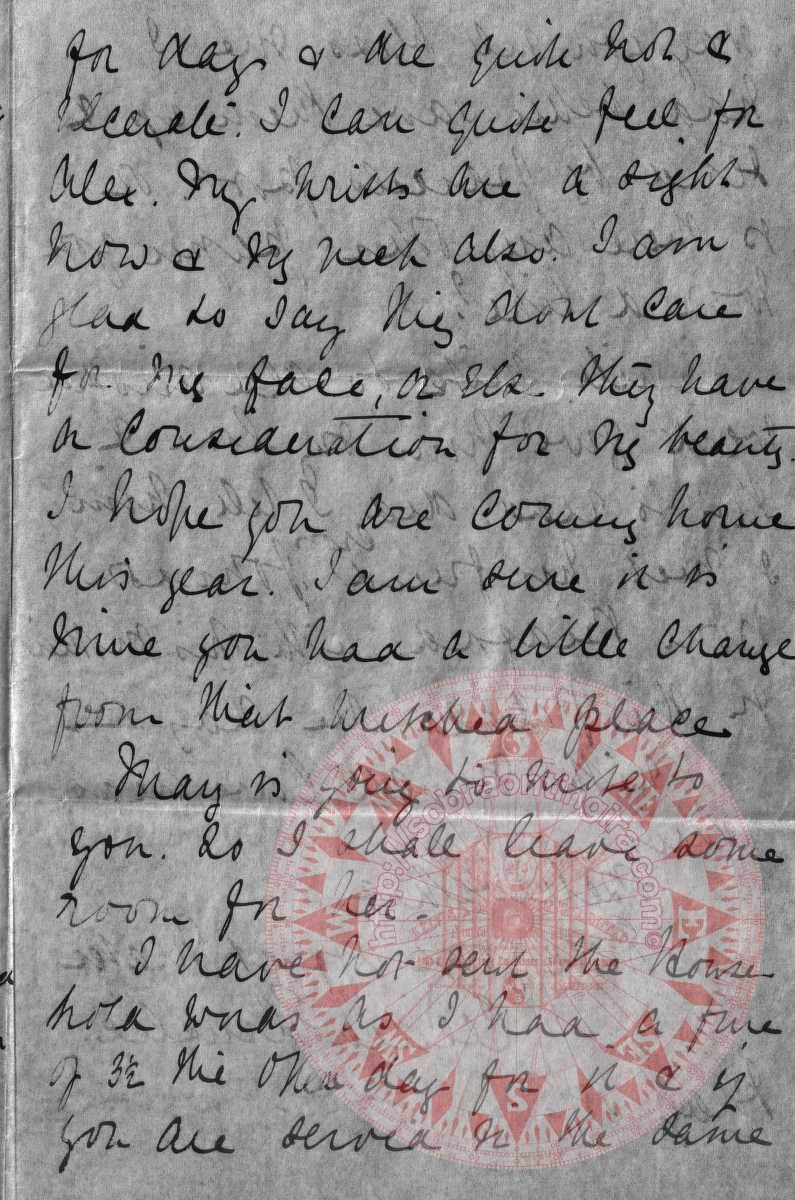 for days & are quite hot &
ulcerate. I can quite feel for
Alex. My wrists are a sight
now & my neck also. I am
glad to say they dont care
for my face, or Els. They have
a consideration for my beauty.
I hope you are coming home
this year. I am sure it is
time you had a little change
from that wretched place
May is going to write to
you. So I shall leave some
room for her.
I have not sent the House
hold words as I had a fine
of 3½ the other day for it & if
you are served in the same
http://sobraoramoira.com